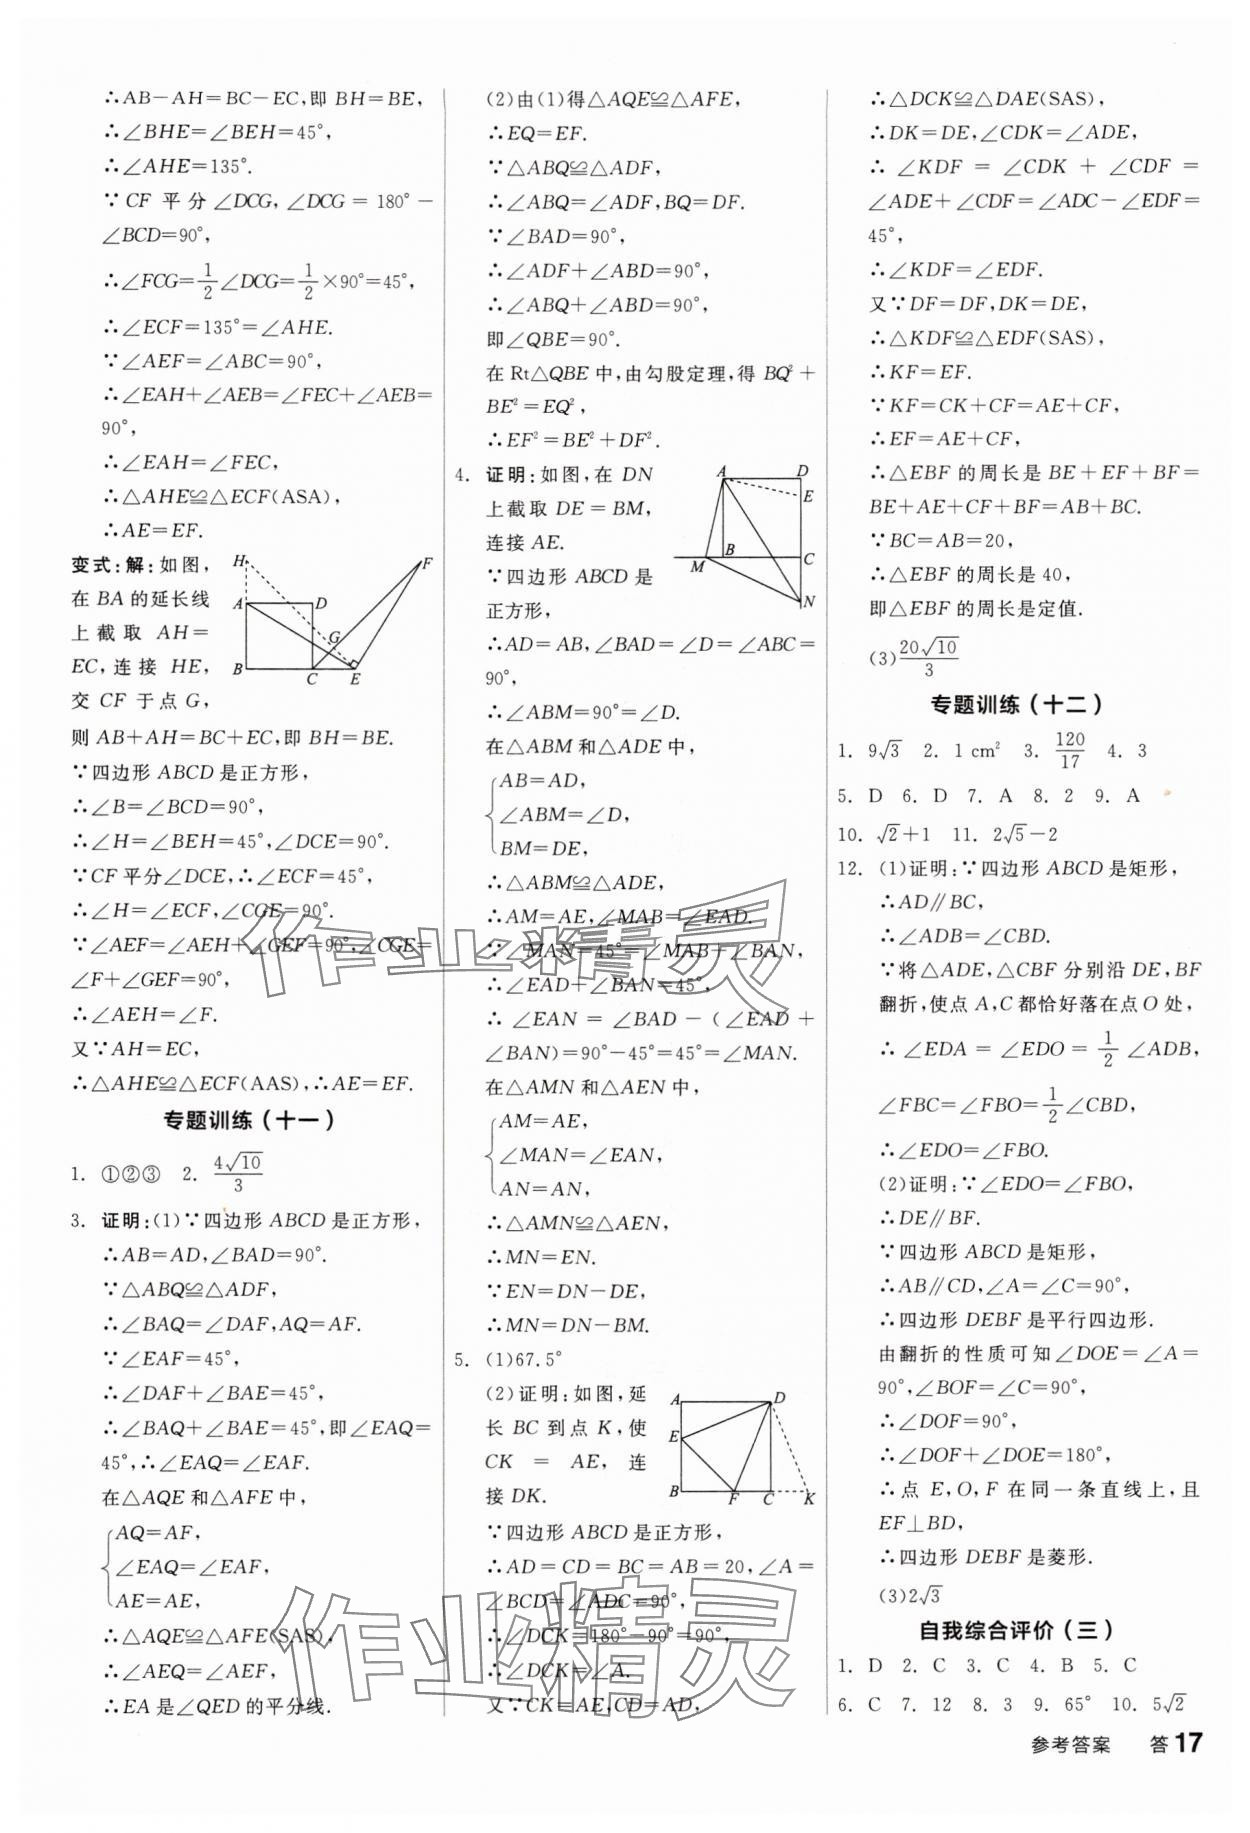 ∴AB－AH＝BC－EC,即BH＝BE,
∴∠BHE＝∠BEH＝45°,
∴∠AHE＝135°.
∵CF 平分∠DCG,∠DCG＝180°－
∠BCD＝90°,
∴∠FCG＝1/2∠DCG＝1/2×90°＝45°,
∴∠ECF＝135°＝∠AHE.
∵∠AEF＝∠ABC＝90°,
∴∠EAH＋∠AEB＝∠FEC＋∠AEB＝
90°,
∴∠EAH＝∠FEC,
∴△AHE≌△ECF(ASA),
∴AE＝EF.
变式:解:如图,
在BA的延长线
上截取 AH＝
EC,连接 HE,
交 CF 于点 G,
H
F
A
D
G
B
C
E
则AB＋AH＝BC＋EC,即BH＝BE.
∵四边形ABCD是正方形,
∴∠B＝∠BCD＝90°,
∴∠H＝∠BEH＝45°,∠DCE＝90°.
∵CF平分∠DCE,∴∠ECF＝45°,
∴∠H＝∠ECF,∠CGE＝90°.
∵∠AEF＝∠AEH＋∠GEF＝90°,∠CGE＝
∠F＋∠GEF＝90°,
∴∠AEH＝∠F.
又∵AH＝EC,
∴△AHE≌△ECF(AAS),∴AE＝EF.
专题训练(十一)
1. ①②③ 2. 4√10/3
3. 证明:(1)∵四边形ABCD是正方形,
∴AB＝AD,∠BAD＝90°.
∵△ABQ≌△ADF,
∴∠BAQ＝∠DAF,AQ＝AF.
∵∠EAF＝45°,
∴∠DAF＋∠BAE＝45°,
∴∠BAQ＋∠BAE＝45°,即∠EAQ＝
45°,∴∠EAQ＝∠EAF.
在△AQE和△AFE中,
AQ＝AF,
∠EAQ＝∠EAF,
AE＝AE,
∴△AQE≌△AFE(SAS),
∴∠AEQ＝∠AEF,
∴EA是∠QED的平分线.
(2)由(1)得△AQE≌△AFE,
∴EQ＝EF.
∵△ABQ≌△ADF,
∴∠ABQ＝∠ADF,BQ＝DF.
∵∠BAD＝90°,
∴∠ADF＋∠ABD＝90°,
∴∠ABQ＋∠ABD＝90°,
即∠QBE＝90°.
在Rt△QBE中,由勾股定理,得BQ²＋
BE²＝EQ²,
∴EF²＝BE²＋DF².
4. 证明:如图,在 DN
上截取 DE＝BM,
连接AE.
∵四边形 ABCD 是
正方形,
A
D
E
B
C
M
N
∴AD＝AB,∠BAD＝∠D＝∠ABC＝
90°,
∴∠ABM＝90°＝∠D.
在△ABM和△ADE中,
AB＝AD,
∠ABM＝∠D,
BM＝DE,
∴△ABM≌△ADE,
∴AM＝AE,∠MAB＝∠EAD.
∵∠MAN＝45°＝∠MAB＋∠BAN,
∴∠EAD＋∠BAN＝45°,
∴∠EAN＝∠BAD－(∠EAD＋
∠BAN)＝90°－45°＝45°＝∠MAN.
在△AMN和△AEN中,
AM＝AE,
∠MAN＝∠EAN,
AN＝AN,
∴△AMN≌△AEN,
∴MN＝EN.
∵EN＝DN－DE,
∴MN＝DN－BM.
5. (1)67.5°
(2)证明:如图,延
长 BC 到点 K,使
CK＝AE,连
接DK.
A
D
E
B
F
C
K
∵四边形ABCD是正方形,
∴AD＝CD＝BC＝AB＝20,∠A＝
∠BCD＝∠ADC＝90°,
∴∠DCK＝180°－90°＝90°,
∴∠DCK＝∠A.
又∵CK＝AE,CD＝AD,
∴△DCK≌△DAE(SAS),
∴DK＝DE,∠CDK＝∠ADE,
∴∠KDF＝∠CDK＋∠CDF＝
∠ADE＋∠CDF＝∠ADC－∠EDF＝
45°,
∴∠KDF＝∠EDF.
又∵DF＝DF,DK＝DE,
∴△KDF≌△EDF(SAS),
∴KF＝EF.
∵KF＝CK＋CF＝AE＋CF,
∴EF＝AE＋CF,
∴△EBF的周长是BE＋EF＋BF＝
BE＋AE＋CF＋BF＝AB＋BC.
∵BC＝AB＝20,
∴△EBF的周长是40,
即△EBF的周长是定值.
(3)20√10/3
专题训练(十二)
1. 9√3 2. 1 cm² 3. 120/17 4. 3
5. D 6. D 7. A 8. 2 9. A
10. √2＋1 11. 2√5－2
12. (1)证明:∵四边形ABCD是矩形,
∴AD∥BC,
∴∠ADB＝∠CBD.
∵将△ADE,△CBF分别沿DE,BF
翻折,使点A,C都恰好落在点O处,
∴∠EDA＝∠EDO＝1/2∠ADB,
∠FBC＝∠FBO＝1/2∠CBD,
∴∠EDO＝∠FBO.
(2)证明:∵∠EDO＝∠FBO,
∴DE∥BF.
∵四边形ABCD是矩形,
∴AB∥CD,∠A＝∠C＝90°,
∴四边形DEBF是平行四边形.
由翻折的性质可知∠DOE＝∠A＝
90°,∠BOF＝∠C＝90°,
∴∠DOF＝90°,
∴∠DOF＋∠DOE＝180°,
∴点E,O,F在同一条直线上,且
EF⊥BD,
∴四边形DEBF是菱形.
(3)2√3
自我综合评价(三)
1. D 2. C 3. C 4. B 5. C
6. C 7. 12 8. 3 9. 65° 10. 5√2
参考答案 答17
作业精灵
作业精灵